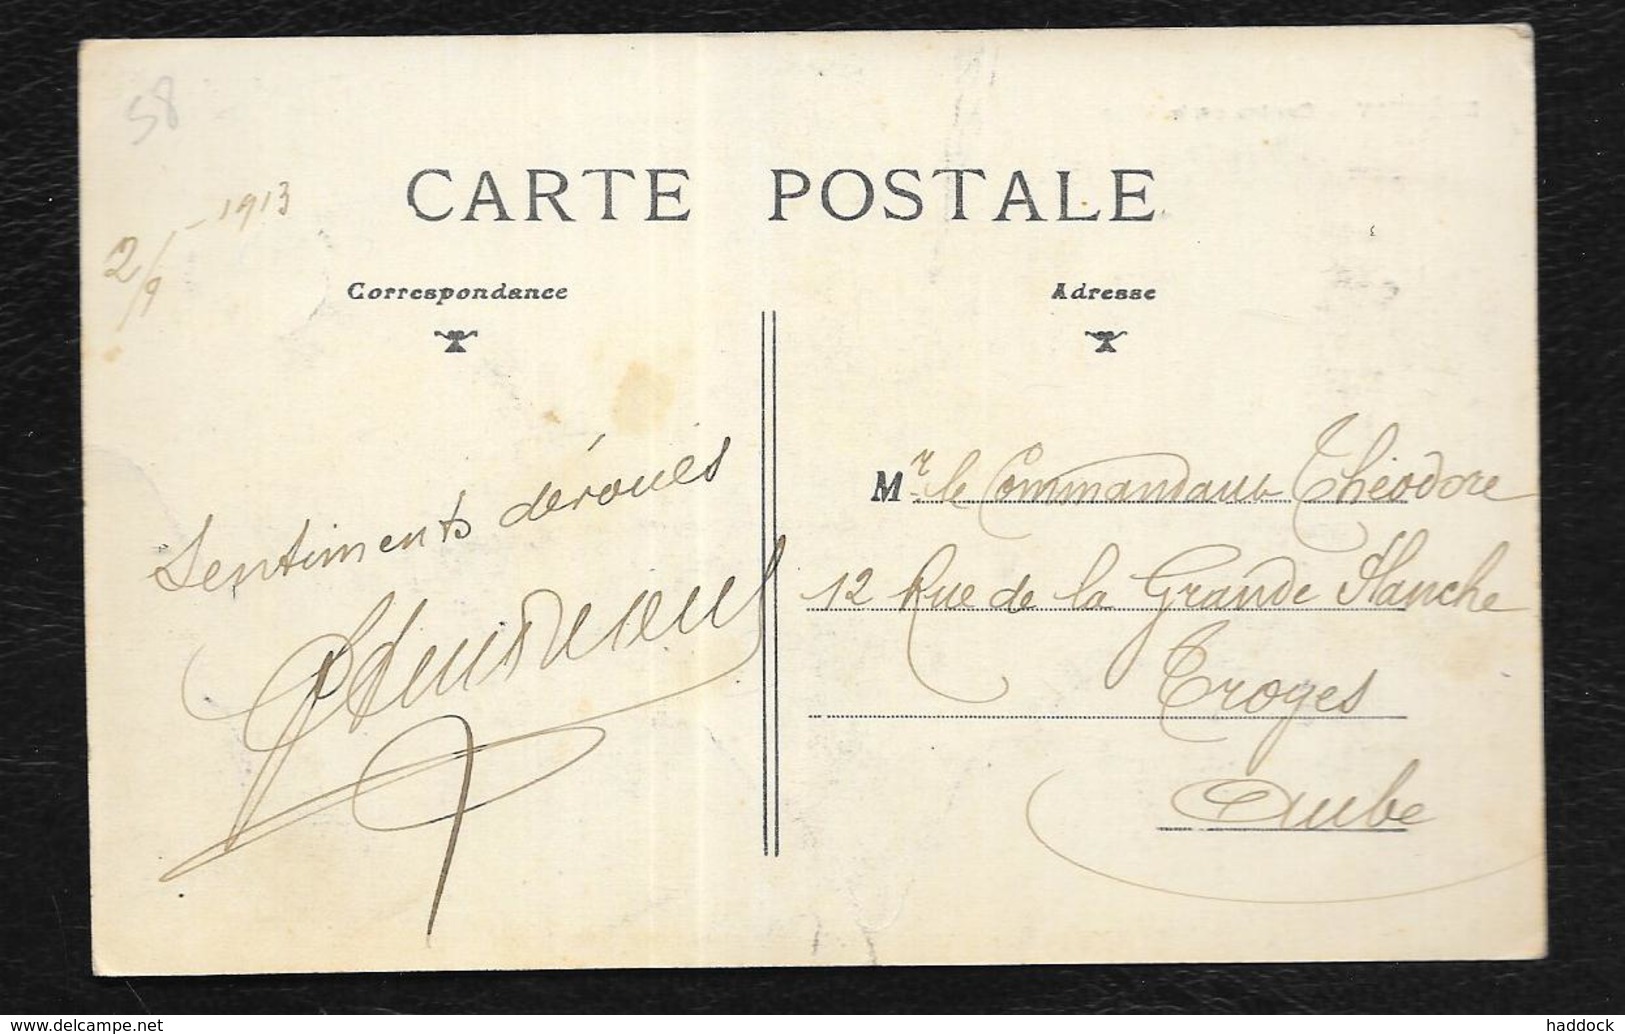 58
2/9 - 1913
CARTE POSTALE
Correspondance
Adresse
Sentiments dévoués
Mr le Commandant Théodore
12 Rue de la Grande Planche
Troyes
Aube
www.delcampe.net
haddock